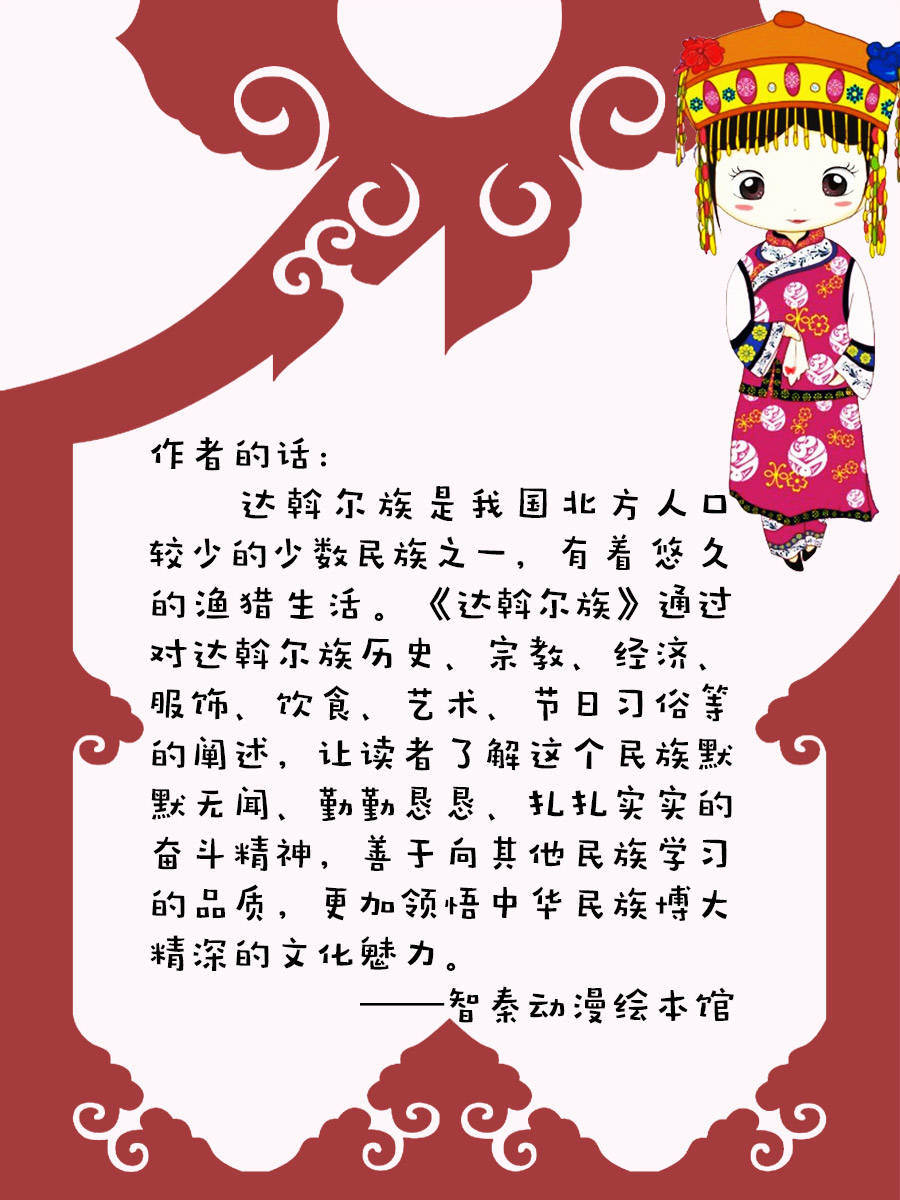 作者的话：
达斡尔族是我国北方人口
较少的少数民族之一，有着悠久
的渔猎生活。《达斡尔族》通过
对达斡尔族历史、宗教、经济、
服饰、饮食、艺术、节日习俗等
的阐述，让读者了解这个民族默
默无闻、勤勤恳恳、扎扎实实的
奋斗精神，善于向其他民族学习
的品质，更加领悟中华民族博大
精深的文化魅力。
——智秦动漫绘本馆